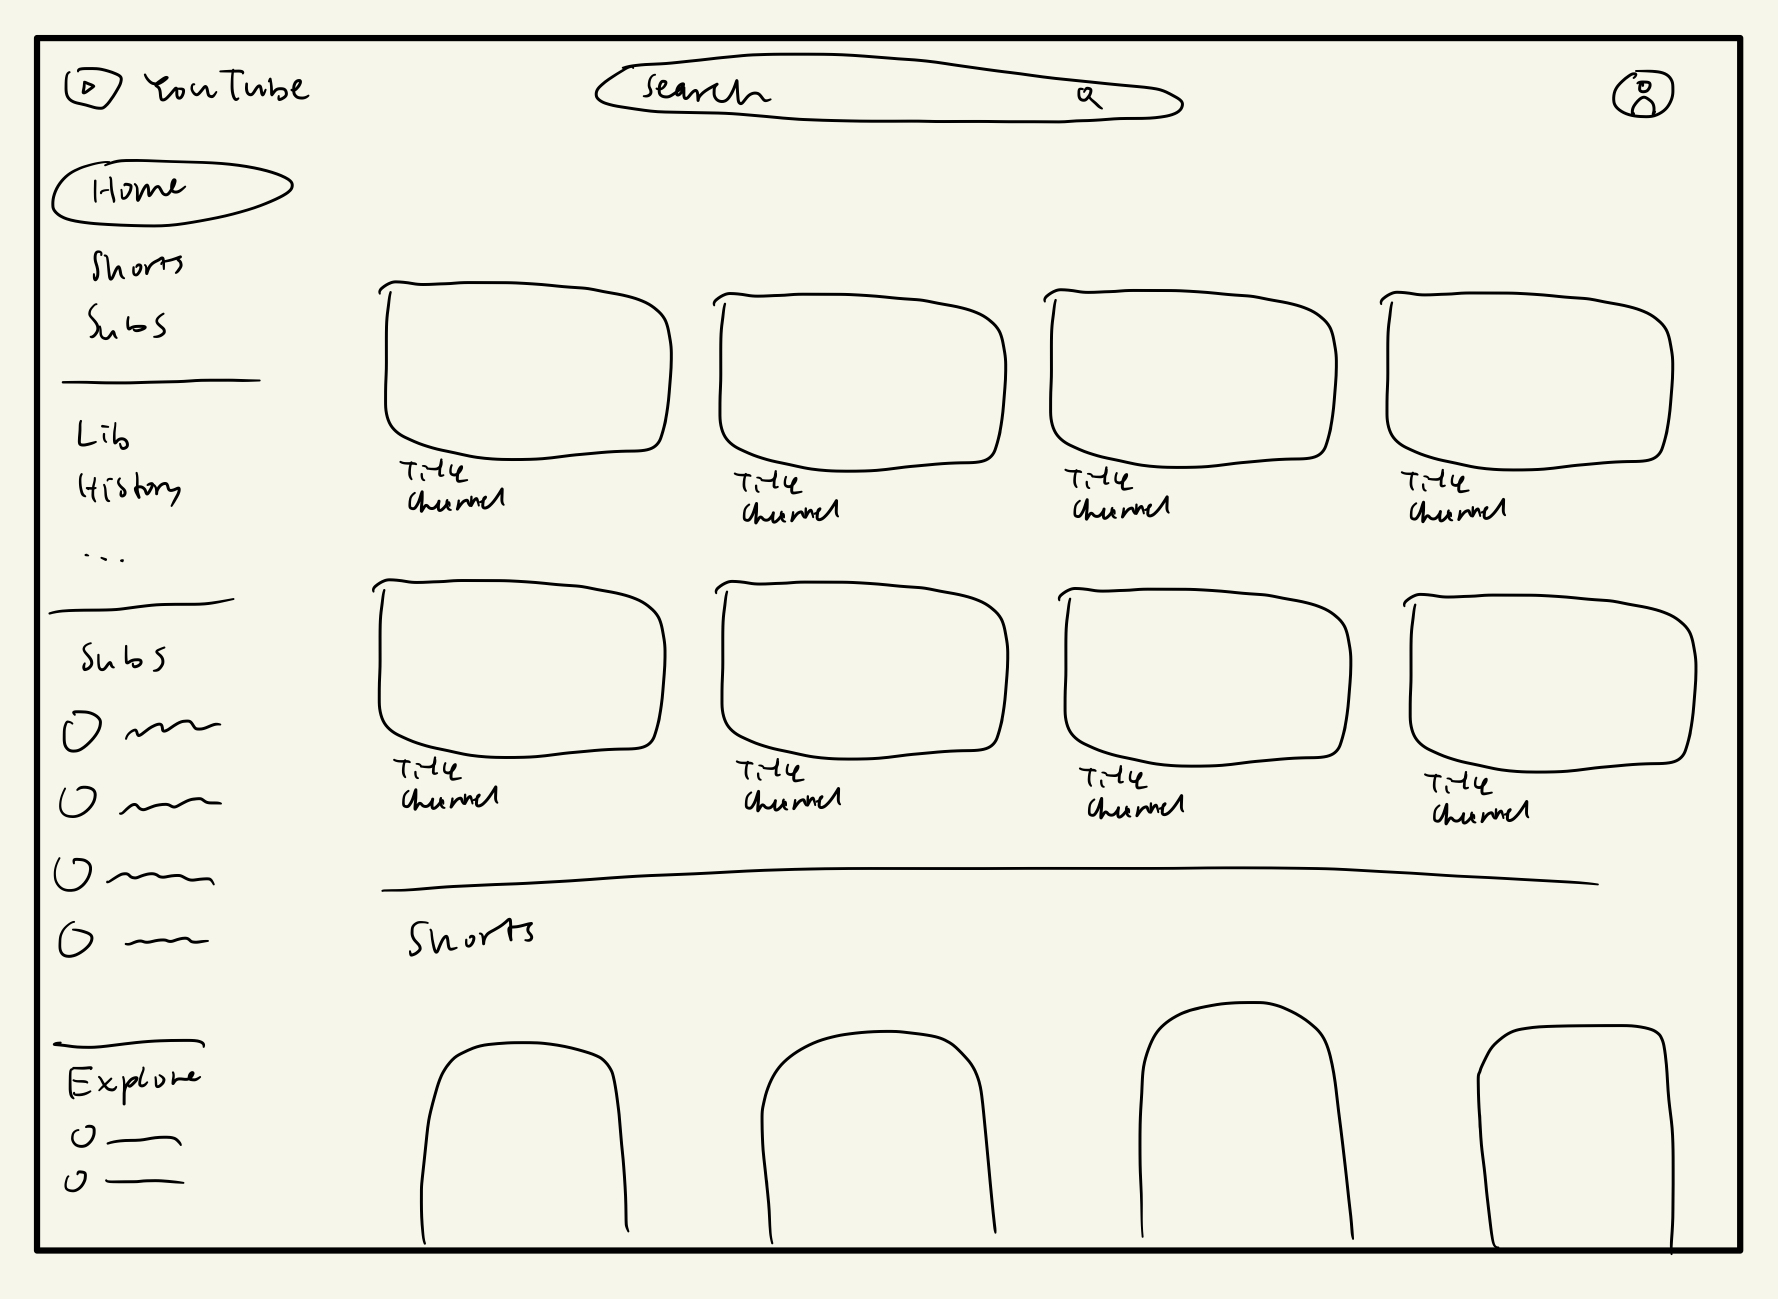 YouTube
Search
Home
Shorts
Subs
Lib
History
...
Subs
Explore
Title
Channel
Title
Channel
Title
Channel
Title
Channel
Title
Channel
Title
Channel
Title
Channel
Title
Channel
Shorts